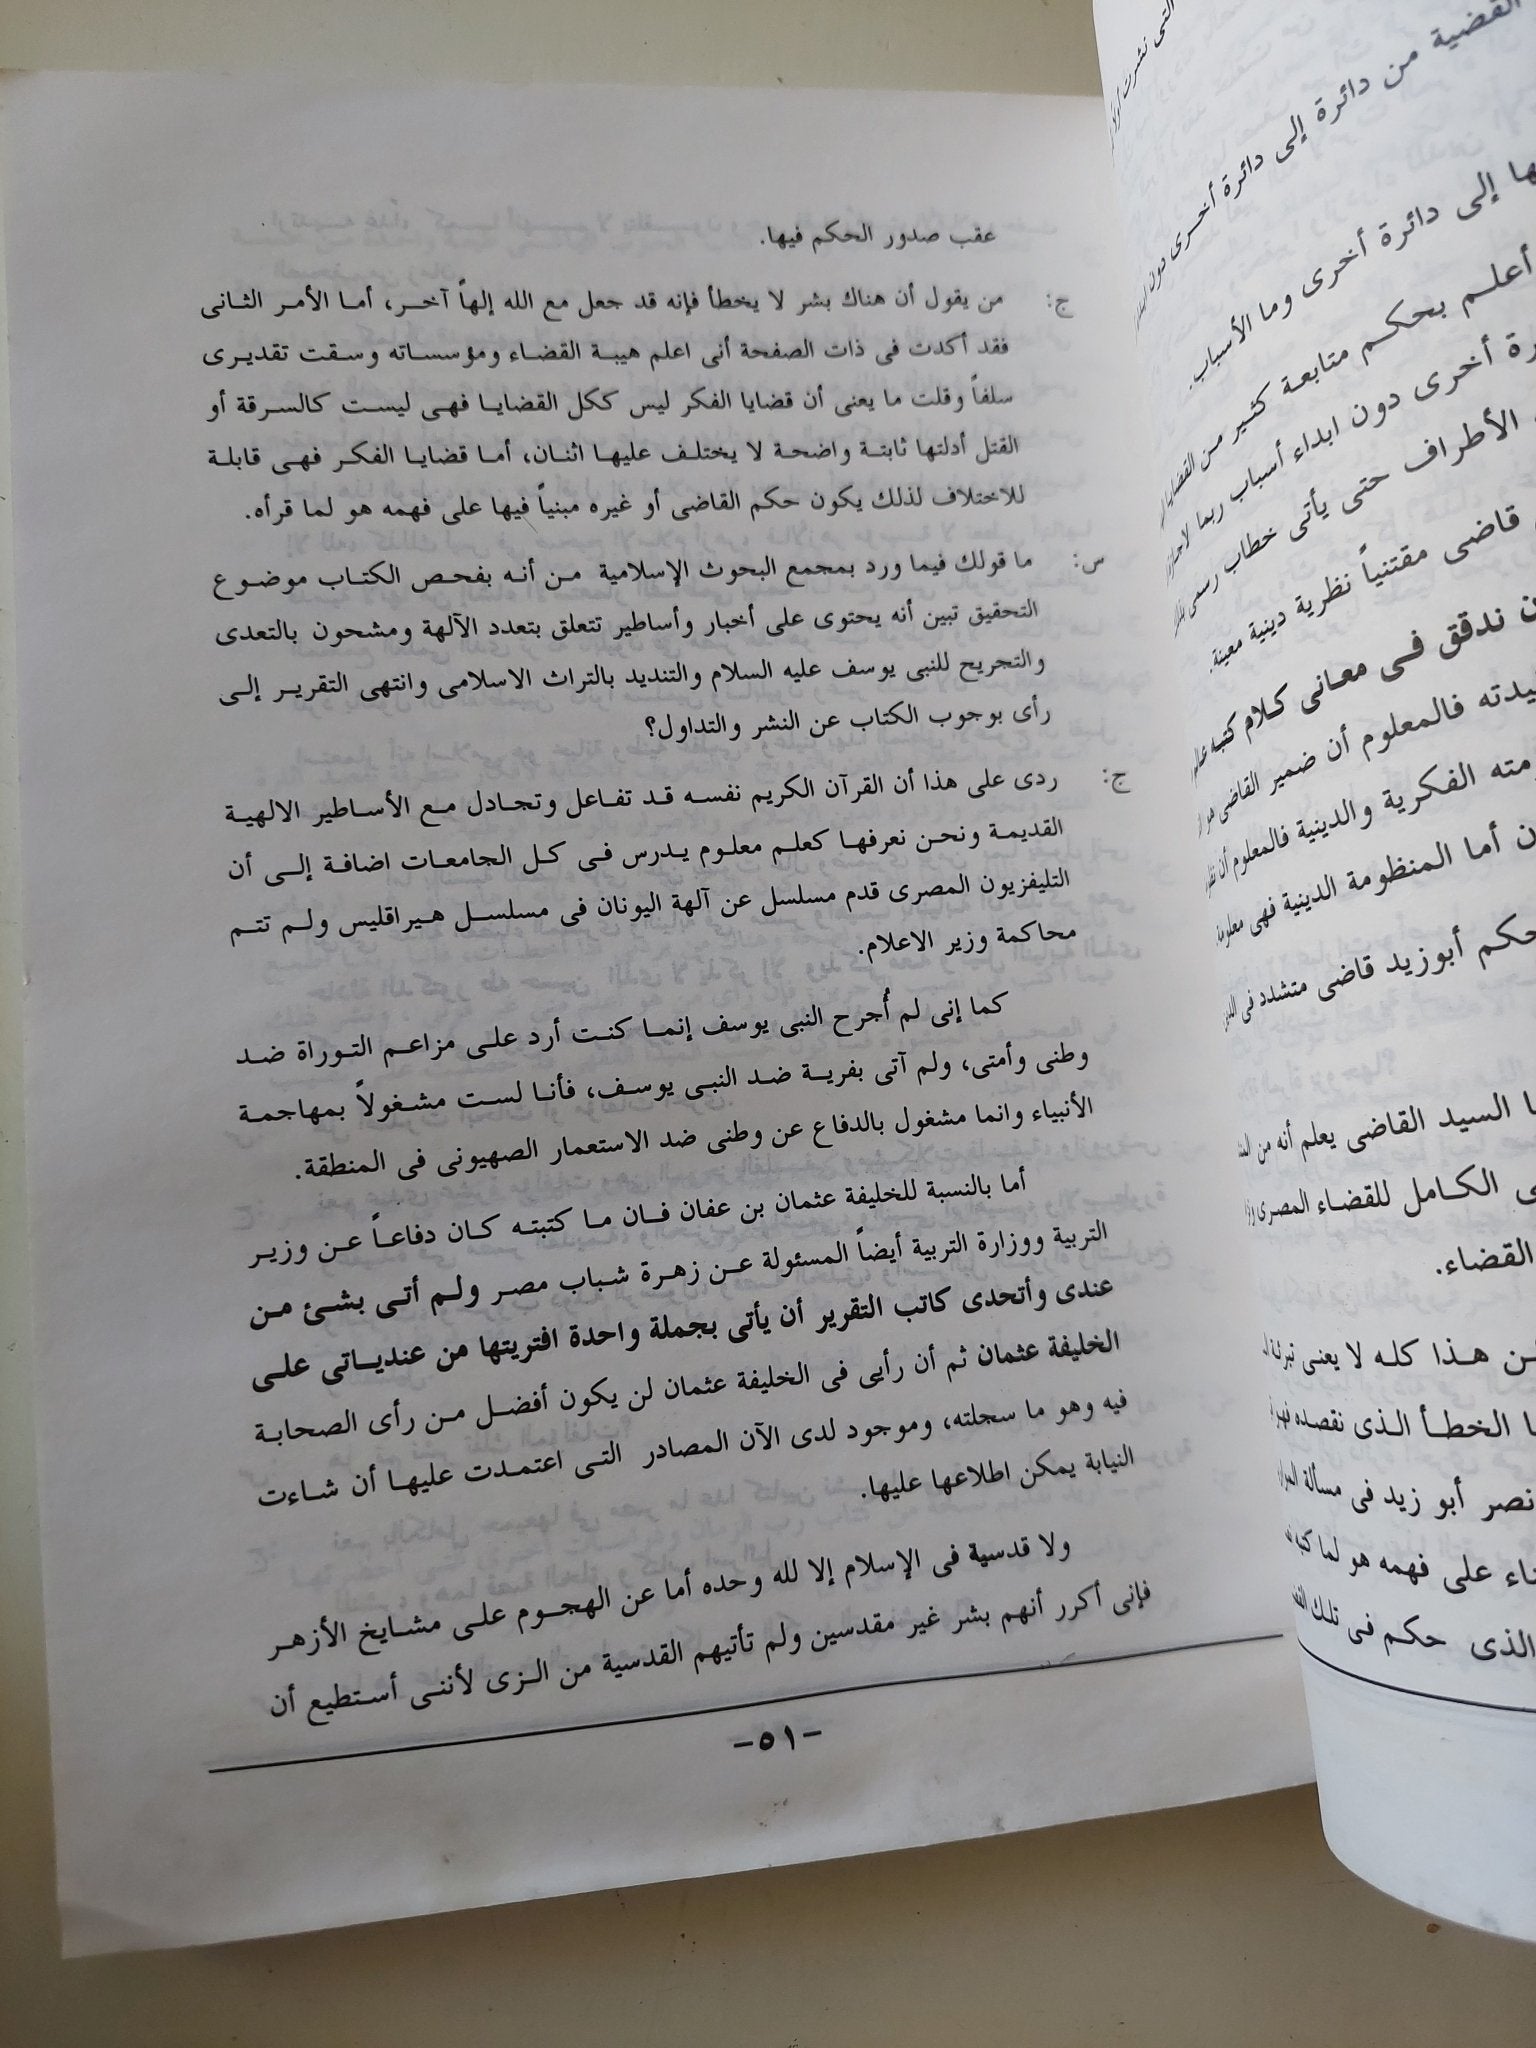 عقب صدور الحكم فيها.
ج: من يقول أن هناك بشر لا يخطأ فإنه قد جعل مع الله إلهاً آخر، أما الأمر الثانى
فقد أكدت فى ذات الصفحة أنى اعلم هيبة القضاء ومؤسساته وسقت تقديرى
سلفاً وقلت ما يعنى أن قضايا الفكر ليس ككل القضايا فهى ليست كالسرقة أو
القتل أدلتها ثابتة واضحة لا يختلف عليها اثنان، أما قضايا الفكر فهى قابلة
للاختلاف لذلك يكون حكم القاضى أو غيره مبنياً فيها على فهمه هو لما قرأه.
س: ما قولك فيما ورد بمجمع البحوث الإسلامية من أنه بفحص الكتاب موضوع
التحقيق تبين أنه يحتوى على أخبار وأساطير تتعلق بتعدد الآلهة ومشحون بالتعدى
والتجريح للنبى يوسف عليه السلام والتنديد بالتراث الاسلامى وانتهى التقرير إلى
رأى بوجوب الكتاب عن النشر والتداول؟
ج: ردى على هذا أن القرآن الكريم نفسه قد تفاعل وتجادل مع الأساطير الالهية
القديمة ونحن نعرفها كعلم معلوم يدرس فى كل الجامعات اضافة إلى أن
التليفزيون المصرى قدم مسلسل عن آلهة اليونان فى مسلسل هيراقليس ولم تتم
محاكمة وزير الاعلام.
كما إنى لم أُجرح النبى يوسف إنما كنت أرد على مزاعم التوراة ضد
وطنى وأمتى، ولم آتى بفرية ضد النبى يوسف، فأنا لست مشغولاً بمهاجمة
الأنبياء وانما مشغول بالدفاع عن وطنى ضد الاستعمار الصهيونى فى المنطقة.
أما بالنسبة للخليفة عثمان بن عفان فان ما كتبته كان دفاعاً عن وزير
التربية ووزارة التربية أيضاً المسئولة عن زهرة شباب مصر ولم أتى بشئ من
عندى وأتحدى كاتب التقرير أن يأتى بجملة واحدة افتريتها من عندياتى على
الخليفة عثمان ثم أن رأيى فى الخليفة عثمان لن يكون أفضل من رأى الصحابة
فيه وهو ما سجلته، وموجود لدى الآن المصادر التى اعتمدت عليها أن شاءت
النيابة يمكن اطلاعها عليها.
ولا قدسية فى الإسلام إلا لله وحده أما عن الهجوم على مشايخ الأزهر
فإنى أكرر أنهم بشر غير مقدسين ولم تأتيهم القدسية من الزى لأننى أستطيع أن
-٥١-
التى نشرت
القضية من دائرة إلى دائرة أخرى دون
إلى دائرة أخرى وما الأسباب.
أعلم بحكم متابعة كثير من القضايا
أخرى دون ابداء أسباب ربما
الأطراف حتى يأتى خطاب رسمى
قاضى مقتنياً نظرية دينية معينة.
ندقق فى معانى كلام كتبه
فالمعلوم أن ضمير القاضى هو
الفكرية والدينية فالمعلوم أن
أما المنظومة الدينية فهى
حكم أبوزيد قاضى متشدد فى
السيد القاضى يعلم أنه من
الكامل للقضاء المصرى
القضاء.
هذا كله لا يعنى
الخطأ الذى نقصده
نصر أبو زيد فى مسألة
على فهمه هو لما كتبه
الذى حكم فى تلك